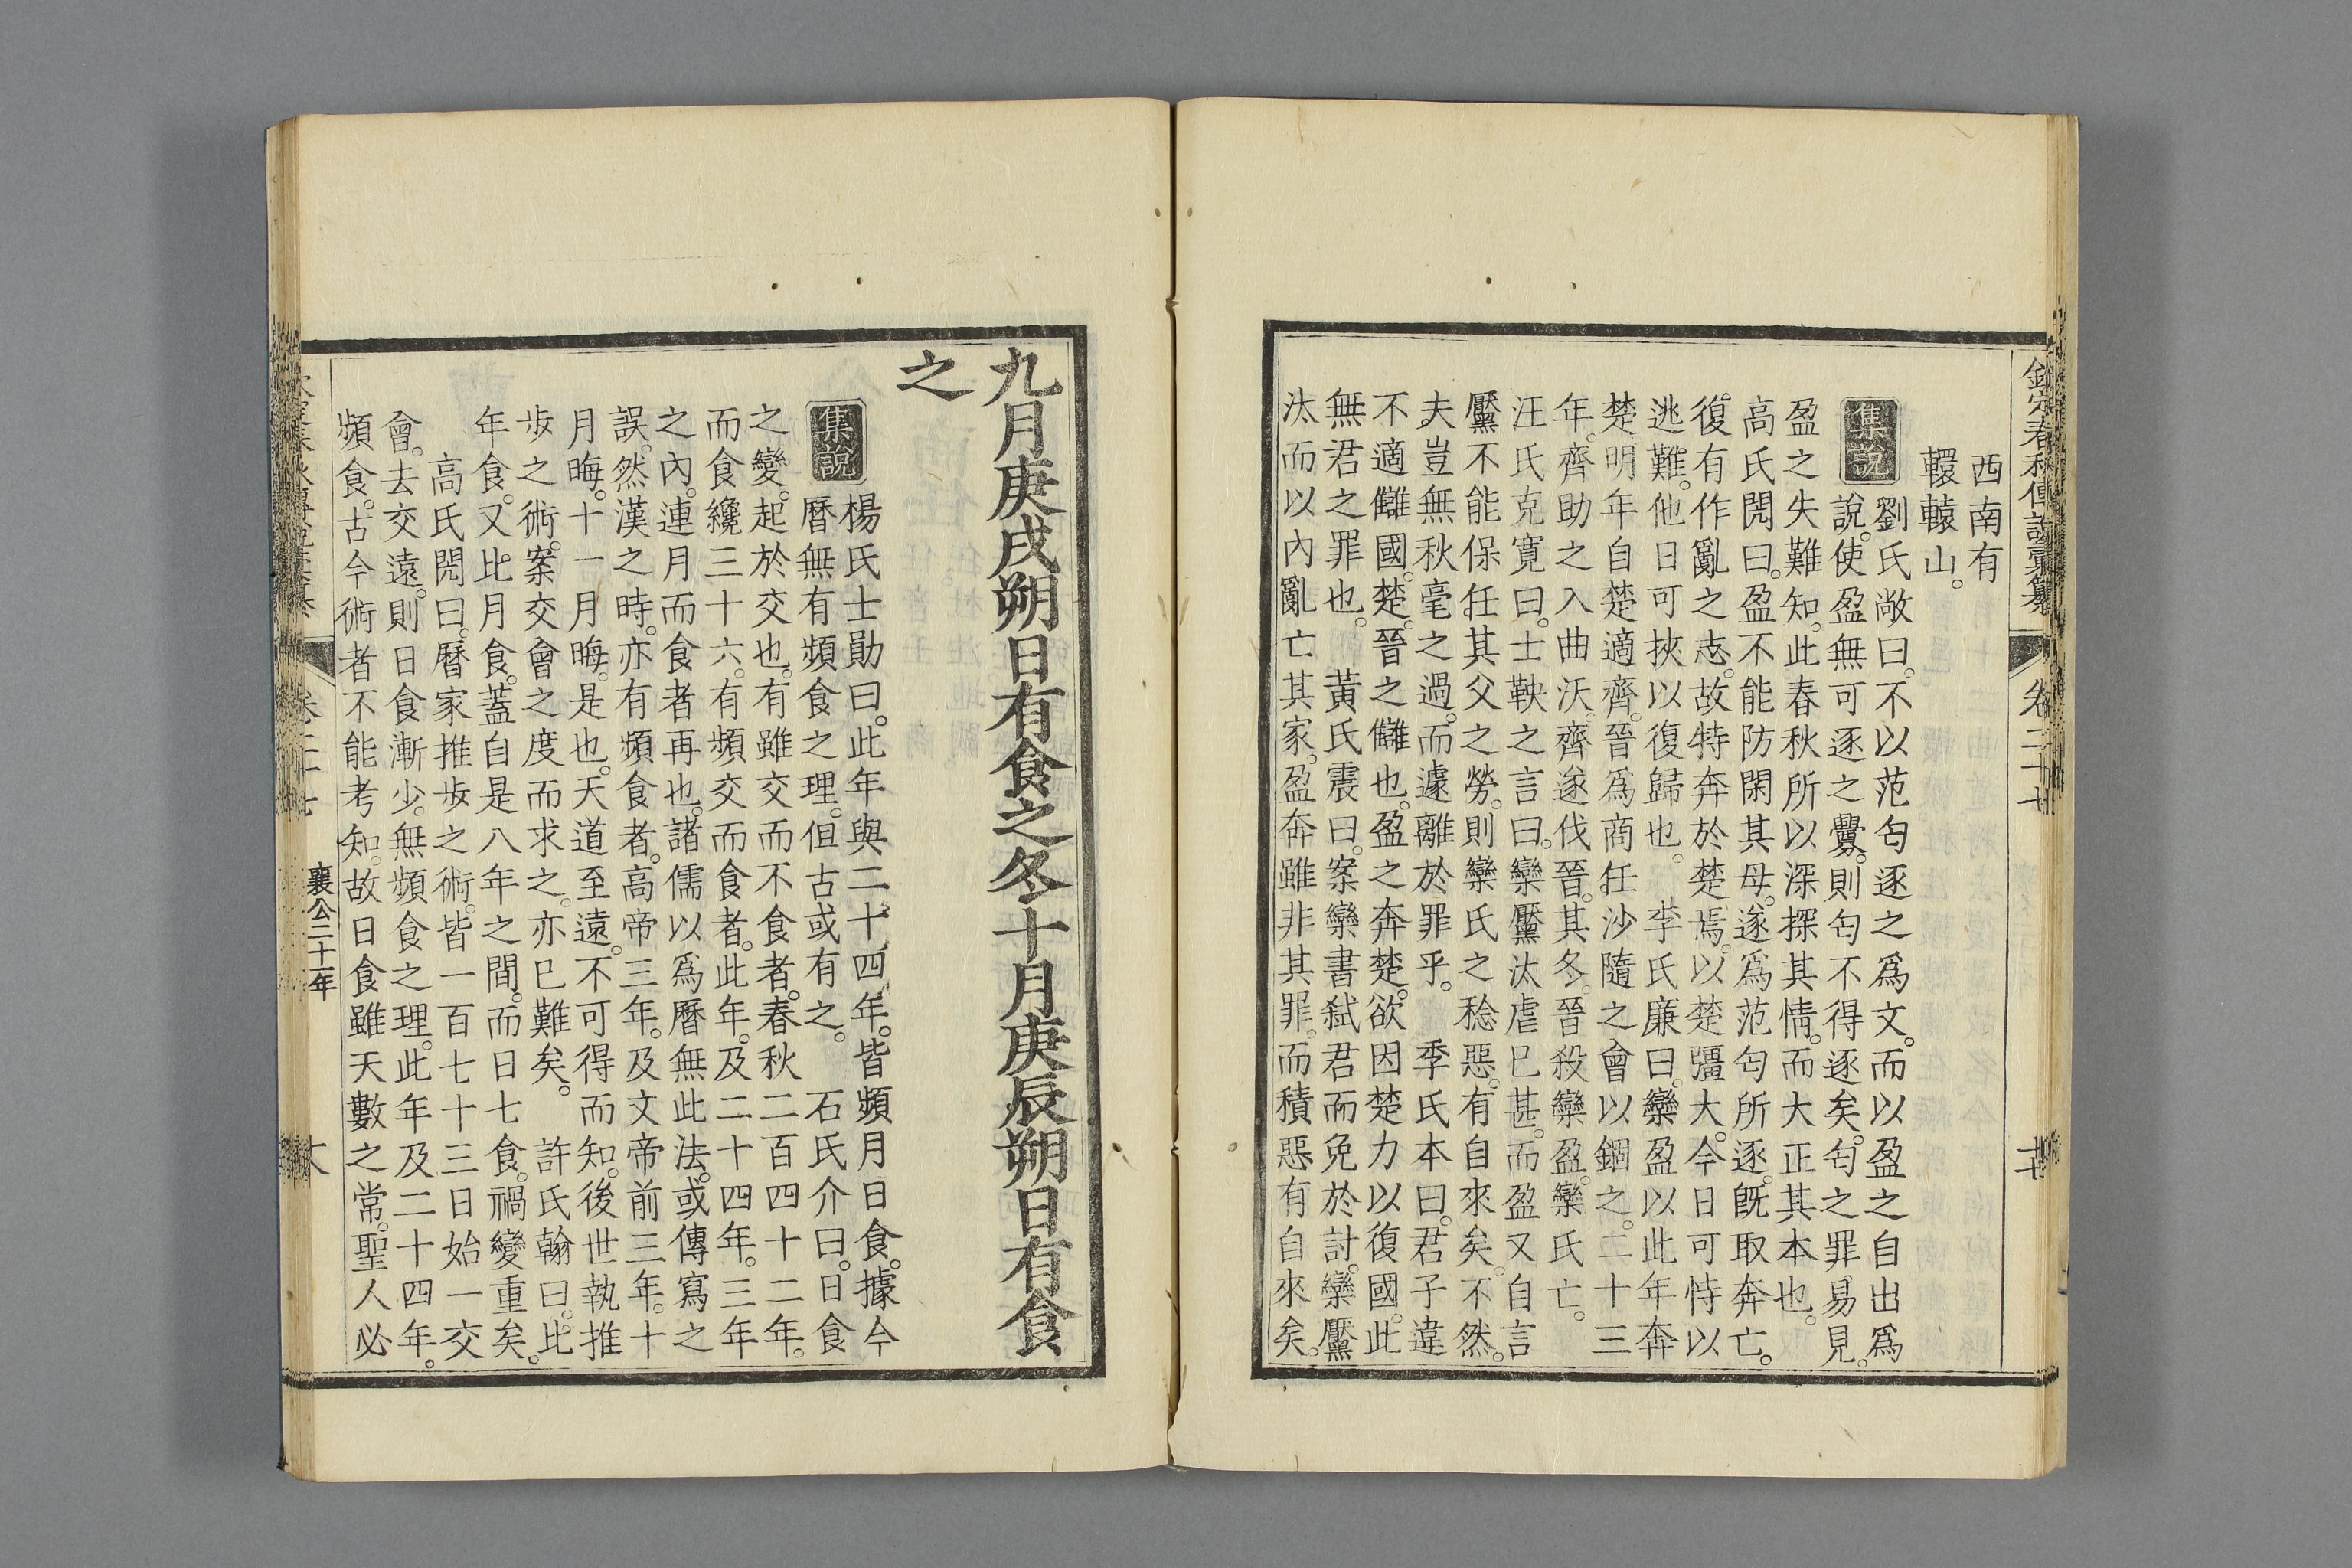 欽定春秋傳說彙纂
卷二十七
西南有
轘轅山。
集說
劉氏敞曰。不以范匄逐之爲文。而以盈之自出爲
說。使盈無可逐之釁。則匄不得逐矣。匄之罪。易見。
盈之失難知。此春秋所以深探其情。而大正其本也。
高氏閌曰。盈不能防閑其母。遂爲范匄所逐。旣取奔亡。
復有作亂之志。故特奔於楚焉。以楚彊大。今日可恃以
逃難。他日可挾以復歸也。 李氏廉曰。欒盈以此年奔
楚。明年自楚適齊。晉爲商任沙隨之會以錮之。二十三
年。齊助之入曲沃。齊遂伐晉。其冬。晉殺欒盈。欒氏亡。
汪氏克寬曰。士鞅之言曰。欒黶汰虐已甚。而盈又自言
黶不能保任其父之勞。則欒氏之稔惡。有自來矣。不然。
夫豈無秋毫之過。而遽離於罪乎。 季氏本曰。君子違
不適讎國。楚。晉之讎也。盈之奔楚。欲因楚力以復國。此
無君之罪也。 黃氏震曰。案欒書弑君而免於討。欒黶
汰而以內亂亡其家。盈奔雖非其罪。而積惡有自來矣。
九月庚戌朔日有食之冬十月庚辰朔日有食
之
集說
楊氏士勛曰。此年與二十四年。皆頻月日食。據今
曆無有頻食之理。但古或有之。 石氏介曰。日食
之變。起於交也。有雖交而不食者。春秋二百四十二年。
而食纔三十六。有頻交而食者。此年。及二十四年。三年
之內。連月而食者再也。諸儒以爲曆無此法。或傳寫之
誤。然漢之時。亦有頻食者。高帝三年。及文帝前三年。十
月晦。十一月晦。是也。天道至遠。不可得而知。後世執推
步之術。案交會之度而求之。亦已難矣。 許氏翰曰。比
年食。又比月食。蓋自是八年之間。而日七食。禍變重矣。
高氏閌曰。曆家推步之術。皆一百七十三日始一交
會。去交遠。則日食漸少。無頻食之理。此年及二十四年。
頻食。古今術者不能考知。故日食雖天數之常。聖人必
襄公二十一年